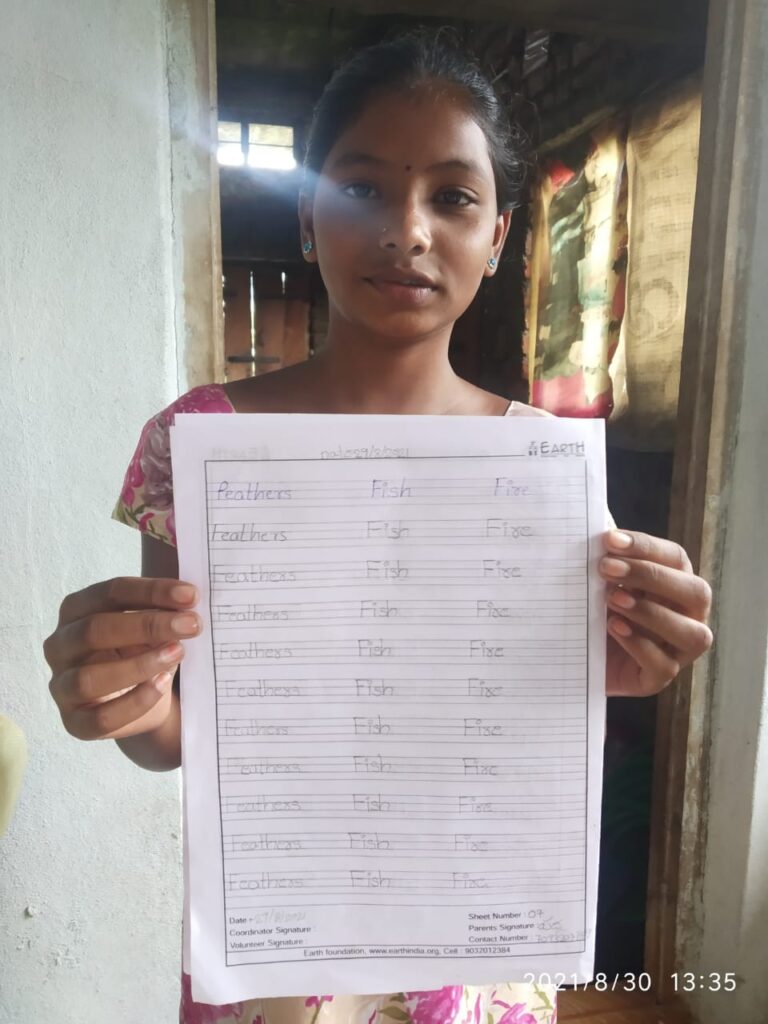 Date 29/8/2021 EARTH
Feathers Fish Fire
Feathers Fish Fire
Feathers Fish Fire
Feathers Fish Fire
Feathers Fish Fire
Feathers Fish Fire
Feathers Fish Fire
Feathers Fish Fire
Feathers Fish Fire
Feathers Fish Fire
Feathers Fish Fire
Date - 29/8/2021 Sheet Number : 07
Coordinator Signature : Parents Signature :
Volunteer Signature : Contact Number :
Earth foundation, www.earthindia.org, Cell : 9032012384
2021/8/30 13:35